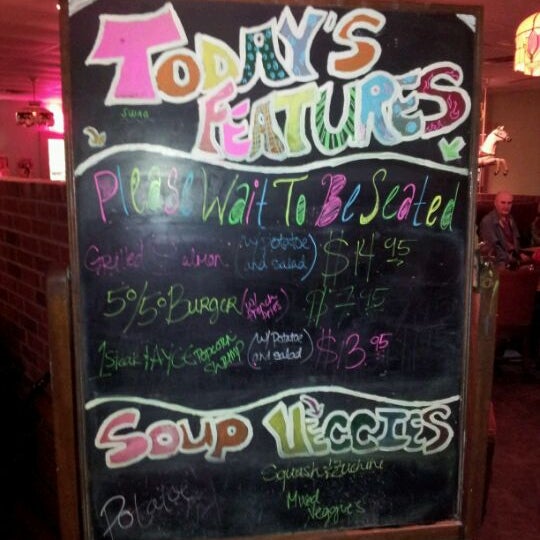 TODAY'S
FEATURES
SWAG
Please Wait To Be Seated
Grilled almon (w/ Potatoe and salad) $14.95
50/50 Burger (w/ French Fries) $7.95
1 Steak & AYCE Popcorn Shrimp (w/ Potatoe and salad) $13.95
SOUP VEGGIES
Squash & Zuchini
Potatoe
Mixed
Veggies